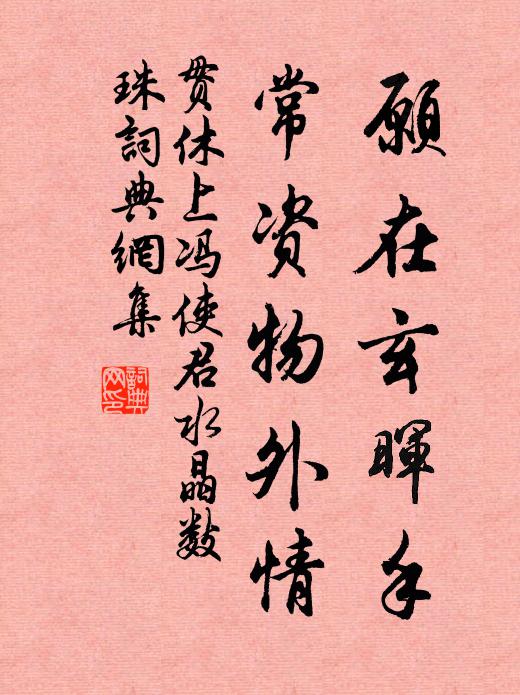 願在玄暉手
常资物外情
贯休上冯使君水晶数
珠詞典網集
詞典網印